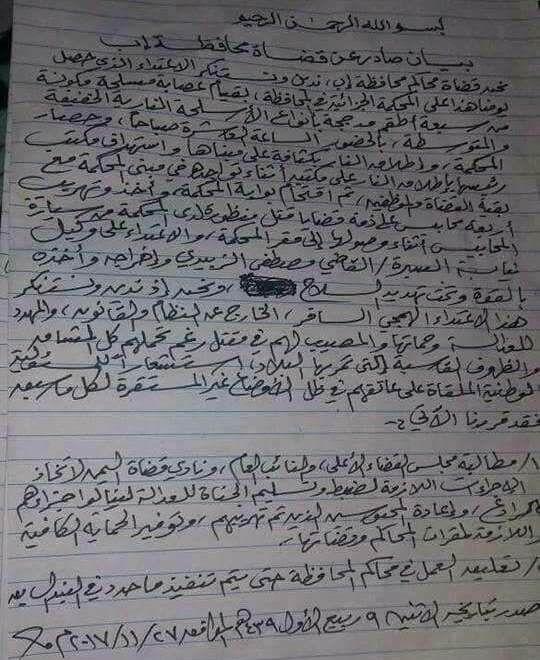 بسم الله الرحمن الرحيم
بيان صادر عن قضاة محافظة إب
نحن قضاة محاكم محافظة إب، ندين ونستنكر الاعتداء الذي حصل
يومنا هذا على المحكمة الجزائية في المحافظة، بقيام عصابة مسلحة مكونة
من سبعة أطقم مدججة بأنواع الأسلحة النارية الخفيفة
والمتوسطة، بالحضور الساعة العاشرة صباحاً، وحصار
المحكمة، وإطلاق النار بكثافة على مبناها واستهداف مكتب
رئيسها بإطلاق النار على مكتبه أثناء تواجده في مبنى المحكمة مع
بقية القضاة والموظفين، ثم اقتحام بوابة المحكمة، وأخذ وتهريب
أربعة محابيس على ذمة قضايا قتل منظورة لدى المحكمة من سيارة
المحابيس أثناء وصولها إلى مقر المحكمة، والاعتداء على وكيل
نيابة السدة / القاضي مصطفى الزبيدي وإخراجه وأخذه
بالقوة وتحت تهديد السلاح، ونحن إذ ندين ونستنكر
هذا الاعتداء الهمجي السافر، الخارج عن النظام والقانون، والمهدد
للعدالة وحماتها والمصيب لهم في مقتل رغم تحملهم كل المشاق
والظروف القاسية التي تمر بها البلاد، استشعاراً للمسئولية
الوطنية الملقاة على عاتقهم في ظل الأوضاع غير المستقرة لكل ما سبق
فقد قررنا الآتي :-
١/ مطالبة مجلس القضاء الأعلى، والنائب العام، ونادي قضاة اليمن لاتخاذ
الإجراءات اللازمة لضبط وتسليم الجناة للعدالة لينالوا جزاءهم
الرادع، وإعادة المحبوسين الذين تم تهريبهم، وتوفير الحماية الكافية
واللازمة لمقرات المحاكم وقضاتها.
/ تعليق العمل في محاكم المحافظة حتى يتم تنفيذ ما حدد في البند السابق
صدر بتاريخ الاثنين ٩ ربيع الأول ١٤٣٩هـ الموافق ٢٧/١١/٢٠١٧م